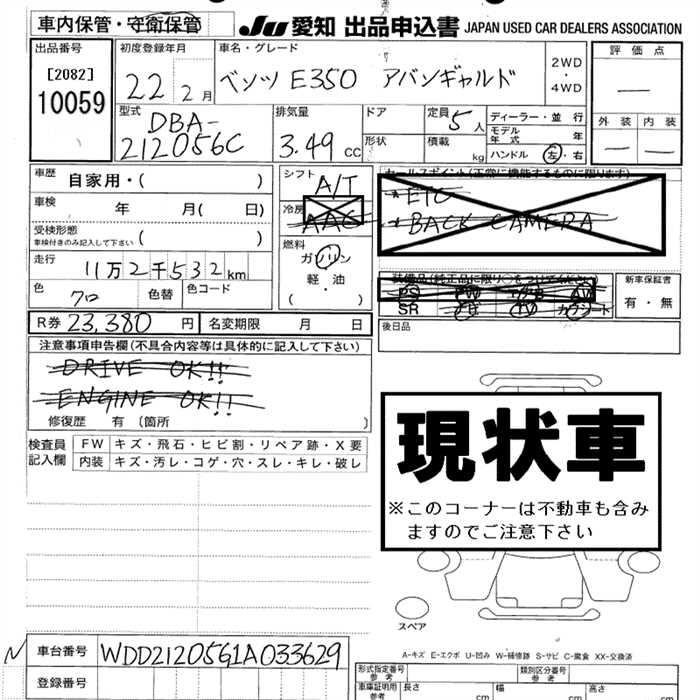 車内保管・守衛保管
JU 愛知 出品申込書 JAPAN USED CAR DEALERS ASSOCIATION
出品番号
[2082]
10059
初度登録年月
22 2月
車名・グレード
ベンツ E350 アバンギャルド
2WD
・
4WD
評価点
—
外装 内装
— —
型式
DBA-
212056C
排気量
3.49 CC
ドア
形状
定員 5人
積載 kg
ディーラー・並行
モデル年式 年
ハンドル 左・右
車歴 自家用・( )
車検 年 月( 日)
受検形態
車検付きのみ記入して下さい ( )
走行 11万2千532km
色 クロ 色替 色コード
シフト A/T
冷房 AAC
燃料
ガソリン
軽油
( ・ )
セールスポイント(正常に機能するものに限ります)
* ETC
* BACK CAMERA
装備品(純正品に限り○をつけてください)
PS PW ナビ AW
SR TV カワシート
新車保証書
有・無
後日品
R券 23,380円 名変期限 月 日
注意事項申告欄(不具合内容等は具体的に記入して下さい)
DRIVE OK!!
ENGINE OK!!
修復歴 有(箇所 )
検査員記入欄
FW キズ・飛石・ヒビ割・リペア跡・X要
内装 キズ・汚レ・コゲ・穴・スレ・キレ・破レ
現状車
※このコーナーは不動車も含み
ますのでご注意下さい
スペア
A-キズ E-エクボ U-凹み W-補修跡 S-サビ C-腐食 XX-交換済
N 車台番号 WDD2120561A033629
登録番号
形式指定番号 参考
類別区分番号 参考
車庫証明用 参考 長さ cm 幅 cm 高さ cm